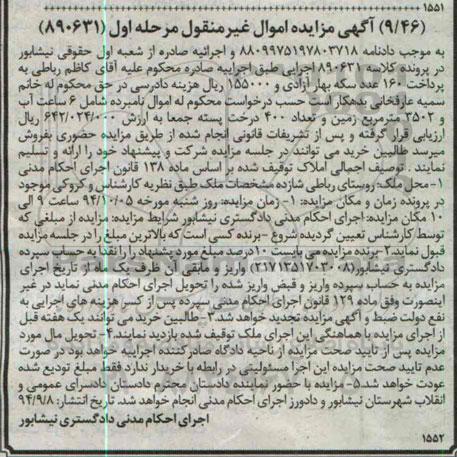 ۱۵۵۱
(۹/۴۶) آگهی مزایده اموال غیرمنقول مرحله اول (۸۹۰۶۳۱)
به موجب دادنامه ۸۸۰۹۹۷۵۱۹۷۸۰۳۷۱۸ و اجرائیه صادره از شعبه اول حقوقی نیشابور
در پرونده کلاسه ۸۹۰۶۳۱ اجرایی طبق اجراییه صادره محکوم علیه آقای کاظم رباطی به
پرداخت ۱۶۰ عدد سکه بهار آزادی و ۱۵۵۰۰۰ ریال هزینه دادرسی در حق محکوم له خانم
سمیه عارفخانی بدهکار است حسب درخواست محکوم له اموال نامبرده شامل ۶ ساعت آب
و ۳۵۰۲ مترمربع زمین و تعداد ۴۰۰ درخت پسته جمعا به ارزش ۶۴۲/۰۲۴/۰۰۰ ریال
ارزیابی قرار گرفته و پس از تشریفات قانونی انجام شده از طریق مزایده حضوری بفروش
میرسد طالبین خرید می توانند در جلسه مزایده شرکت و پیشنهاد خود را ارائه و تسلیم
نمایند . توصیف اجمالی املاک توقیف شده بر اساس ماده ۱۳۸ قانون اجرای احکام مدنی
۱-محل ملک: روستای رباطی شازده مشخصات ملک طبق نظریه کارشناس و کروکی موجود
در پرونده زمان و مکان مزایده: ۱- زمان مزایده: روز شنبه مورخه ۹۴/۱۰/۰۵ ساعت ۹ الی
۱۰ مکان مزایده: اجرای احکام مدنی دادگستری نیشابور شرایط مزایده: مزایده از مبلغی که
توسط کارشناس تعیین گردیده شروع -برنده کسی است که بالاترین مبلغ را در جلسه مزایده
قبول نماید.۲-برنده مزایده می بایست ۱۰درصد مبلغ مورد پیشنهاد را نقدا به حساب سپرده
دادگستری نیشابور(۲۱۷۱۳۵۱۷۰۳۰۰۸) واریز و مابقی آن ظرف یک ماه از تاریخ اجرای
مزایده به حساب سپرده واریز و قبض واریز شده را تحویل اجرای احکام مدنی نماید در غیر
اینصورت وفق ماده ۱۲۹ قانون اجرای احکام مدنی سپرده پس از کسر هزینه های اجرایی به
نفع دولت ضبط و آگهی مزایده تجدید خواهد شد.۳-طالبین خرید می توانند یک هفته قبل
از اجرای مزایده با هماهنگی این اجرای ملک توقیف شده بازدید نمایند.۴- تحویل مال مورد
مزایده پس از تایید صحت مزایده از ناحیه دادگاه صادر کننده اجراییه خواهد بود در صورت
عدم تایید صحت مزایده این اجرا مسئولیتی در رابطه با خریدار ندارد فقط مبلغ تودیع شده
عودت خواهد شد.۵-مزایده با حضور نماینده دادستان محترم دادستان دادسرای عمومی و
انقلاب شهرستان نیشابور و دادورز اجرای احکام مدنی انجام خواهد شد. تاریخ انتشار: ۹۴/۹/۸
اجرای احکام مدنی دادگستری نیشابور
۱۵۵۲